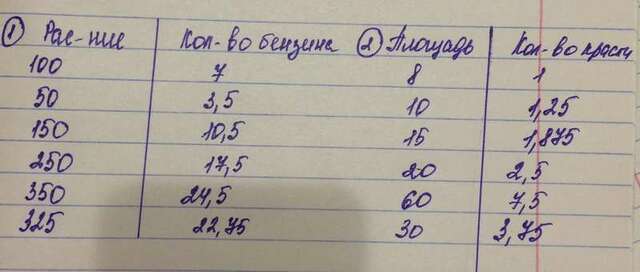 ① Рас-ние Кол-во бензина ② Площадь Кол-во краски
100 7 8 1
50 3,5 10 1,25
150 10,5 15 1,875
250 17,5 20 2,5
350 24,5 60 7,5
325 22,75 30 3,75